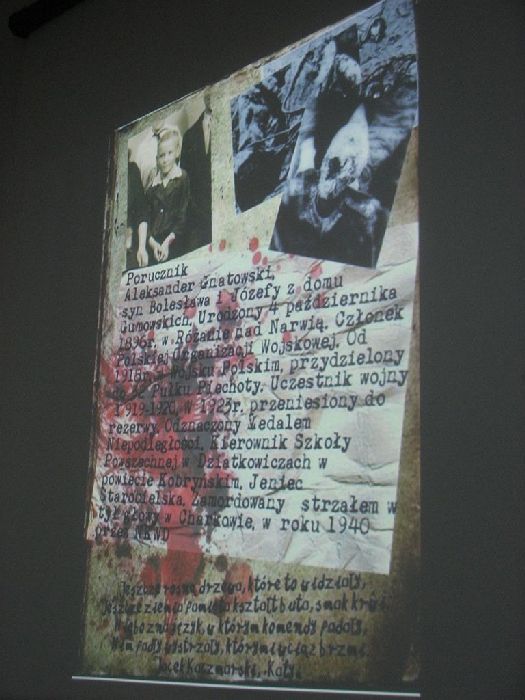 Porucznik
Aleksander Gnatowski,
syn Bolesława i Józefy z domu
Gumowskich. Urodzony 4 października
1896r. w Różanie nad Narwią. Członek
Polskiej Organizacji Wojskowej. Od
1918r. w Wojsku Polskim, przydzielony
do 42 Pułku Piechoty. Uczestnik wojny
1919-1920, w 1923r. przeniesiony do
rezerwy. Odznaczony Medalem
Niepodległości. Kierownik Szkoły
Powszechnej w Dziatkowiczach w
powiecie Kobryńskim, Jeniec
Starobielska, Zamordowany strzałem w
tył głowy w Charkowie, w roku 1940
przez NKWD
Jeszcze rosną drzewa, które to widziały,
Jeszcze ziemia pamięta kształt buta, smak krwi.
Niebo zna język, w którym komendy padały,
Nim padły wystrzały, którymi wciąż brzmi.
Jacek Kaczmarski,